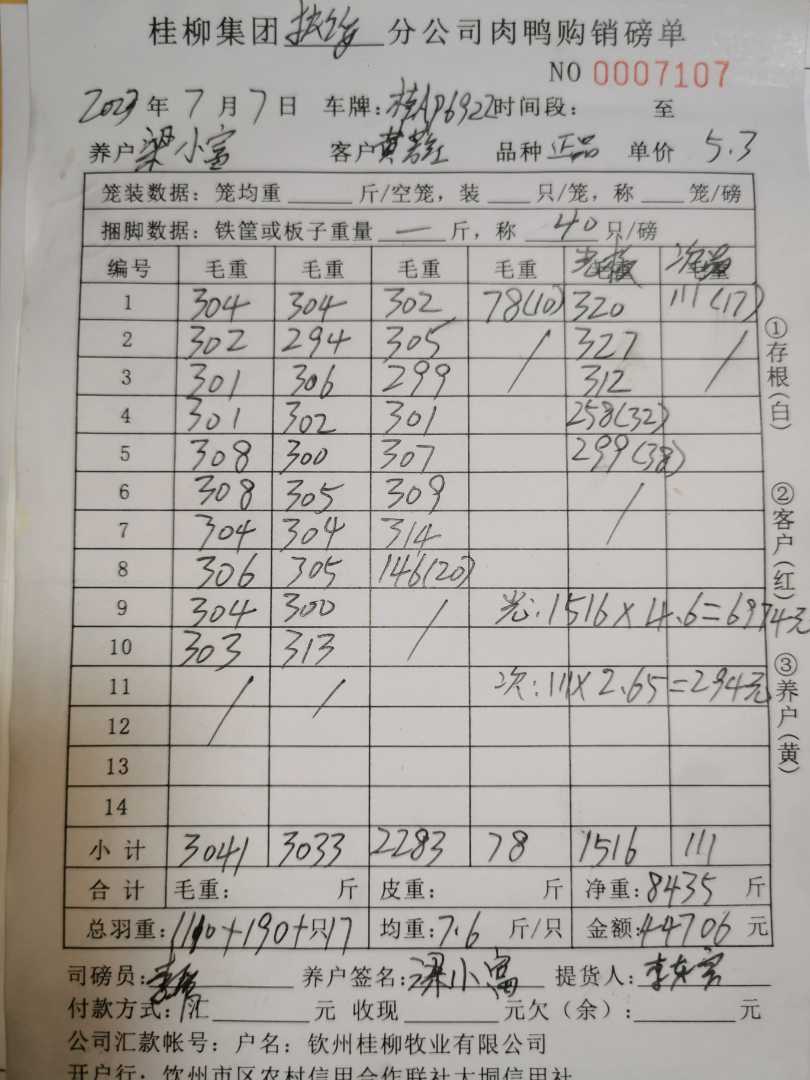 桂柳集团 分公司肉鸭购销磅单
NO 0007107
2023年7月7日 车牌:桂AP6922时间段: 至
养户梁小富 客户黄若红 品种正品 单价 5.3
笼装数据:笼均重 斤/空笼,装 只/笼,称 笼/磅
捆脚数据:铁筐或板子重量 一 斤,称 40 只/磅
编号 毛重 毛重 毛重 毛重
1 304 304 302 78(10) 320 111(17)
2 302 294 305 / 327 /
3 301 306 299 / 312 /
4 301 302 301 258(32)
5 308 300 307 299(38)
6 308 305 309 /
7 304 304 314
8 306 305 146(20)
9 304 300 / 光:1516×4.6=6974元
10 303 313
11 / / 次:111×2.65=294元
12
13
14
小计 3041 3033 2283 78 1516 111
合计 毛重: 斤 皮重: 斤 净重:8435 斤
总羽重:1110+190+只17 均重:7.6 斤/只 金额:44706 元
司磅员: 养户签名:梁小富 提货人:
付款方式:汇 元 收现 元欠(余): 元
公司汇款帐号:户名:钦州桂柳牧业有限公司
开户行:钦州市区农村信用合作联社大垌信用社
①存根(白)
②客户(红)
③养户(黄)